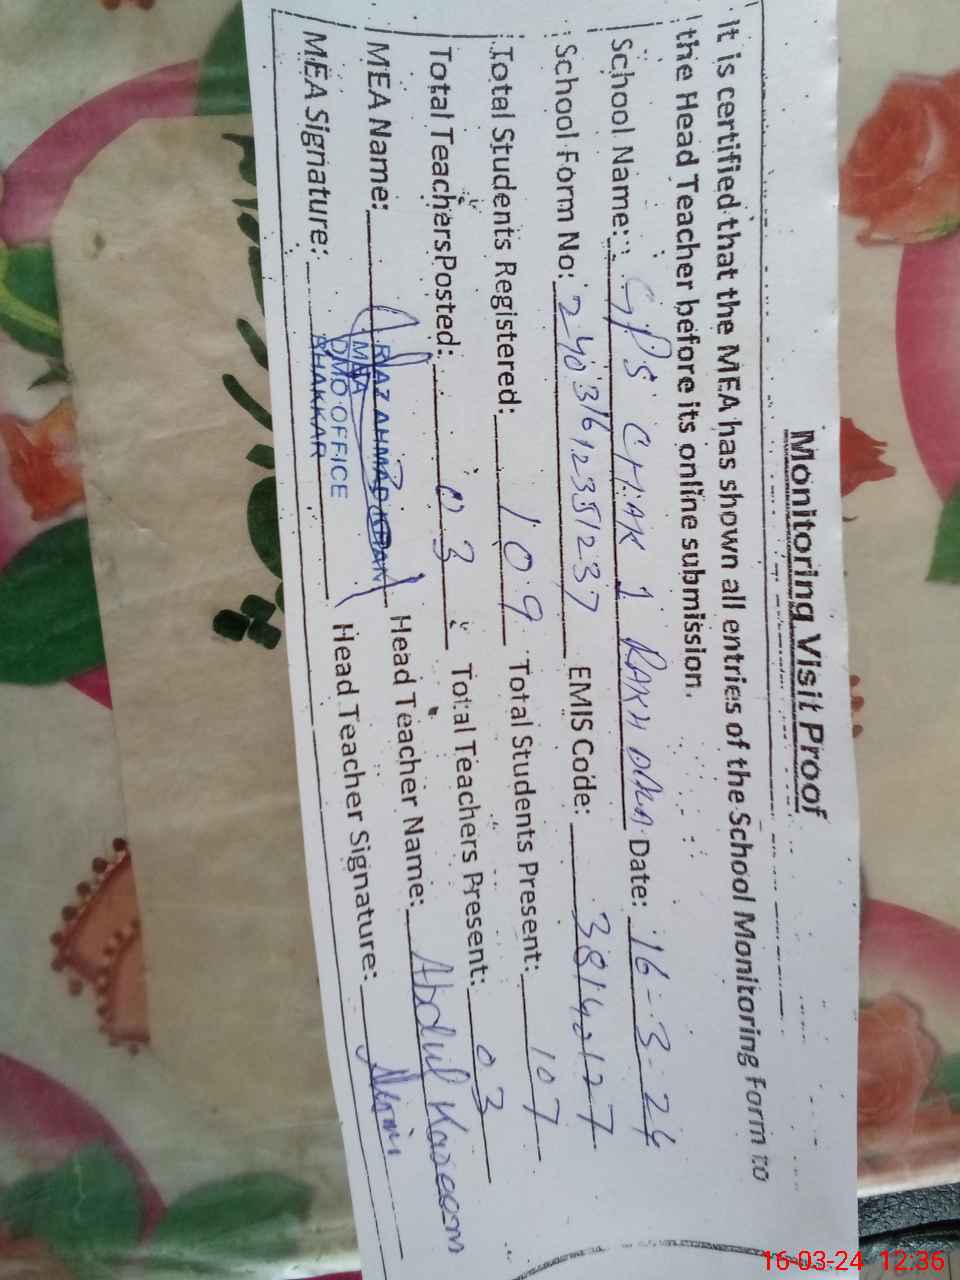 Monitoring Visit Proof
It is certified that the MEA has shown all entries of the School Monitoring Form to
the Head Teacher before its online submission.
School Name: GPS CHAK 1 RAKH Date: 16-3-24
School Form No: EMIS Code:
Total Students Registered: 109 Total Students Present: 107
Total Teachers Posted: 03 Total Teachers Present: 03
MEA Name: RIAZ AHMAD KHAN Head Teacher Name: Abdul Kareem
MEA
DMO OFFICE
BHAKKAR
MEA Signature: Head Teacher Signature:
16-03-24 12:36